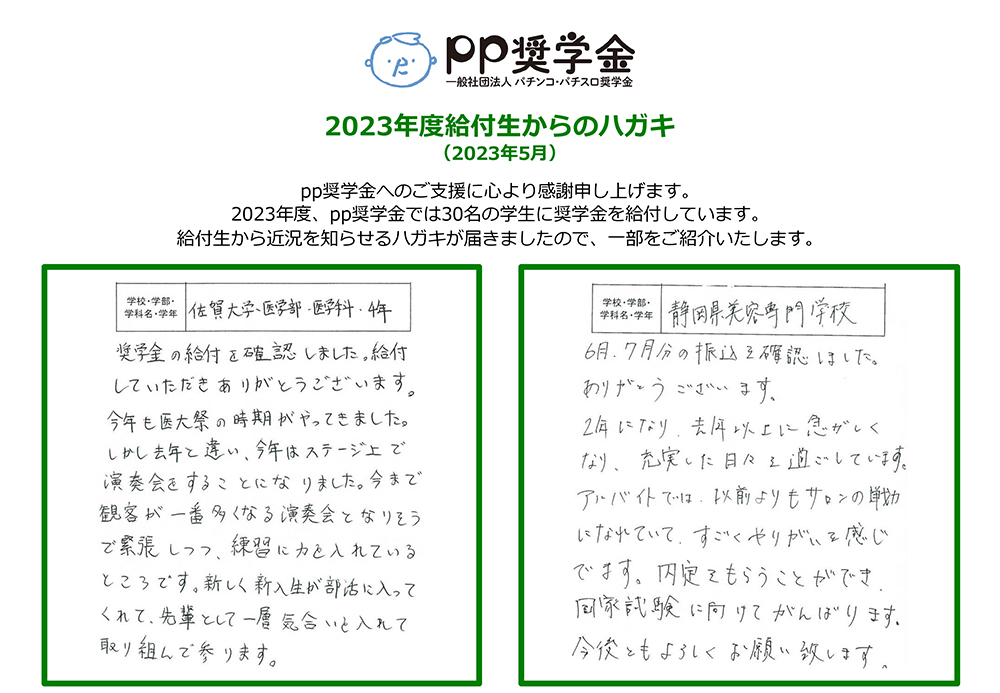 pp奨学金
一般社団法人 パチンコ・パチスロ奨学金
2023年度給付生からのハガキ
（2023年5月）
pp奨学金へのご支援に心より感謝申し上げます。
2023年度、pp奨学金では30名の学生に奨学金を給付しています。
給付生から近況を知らせるハガキが届きましたので、一部をご紹介いたします。
学校・学部・
学科名・学年
佐賀大学・医学部・医学科・4年
奨学金の給付を確認しました。給付
していただきありがとうございます。
今年も医大祭の時期がやってきました。
しかし去年と違い、今年はステージ上で
演奏会をすることになりました。今まで
観客が一番多くなる演奏会となりそう
で緊張しつつ、練習に力を入れている
ところです。新しく新入生が部活に入って
くれて、先輩として一層気合いを入れて
取り組んで参ります。
学校・学部・
学科名・学年
静岡県美容専門学校
6月、7月分の振込を確認しました。
ありがとうございます。
2年になり、去年以上に忙がしく
なり、充実した日々を過ごしています。
アルバイトでは、以前よりもサロンの戦力
になれていて、すごくやりがいを感じ
てます。内定をもらうことができ、
国家試験に向けてがんばります。
今後ともよろしくお願い致します。